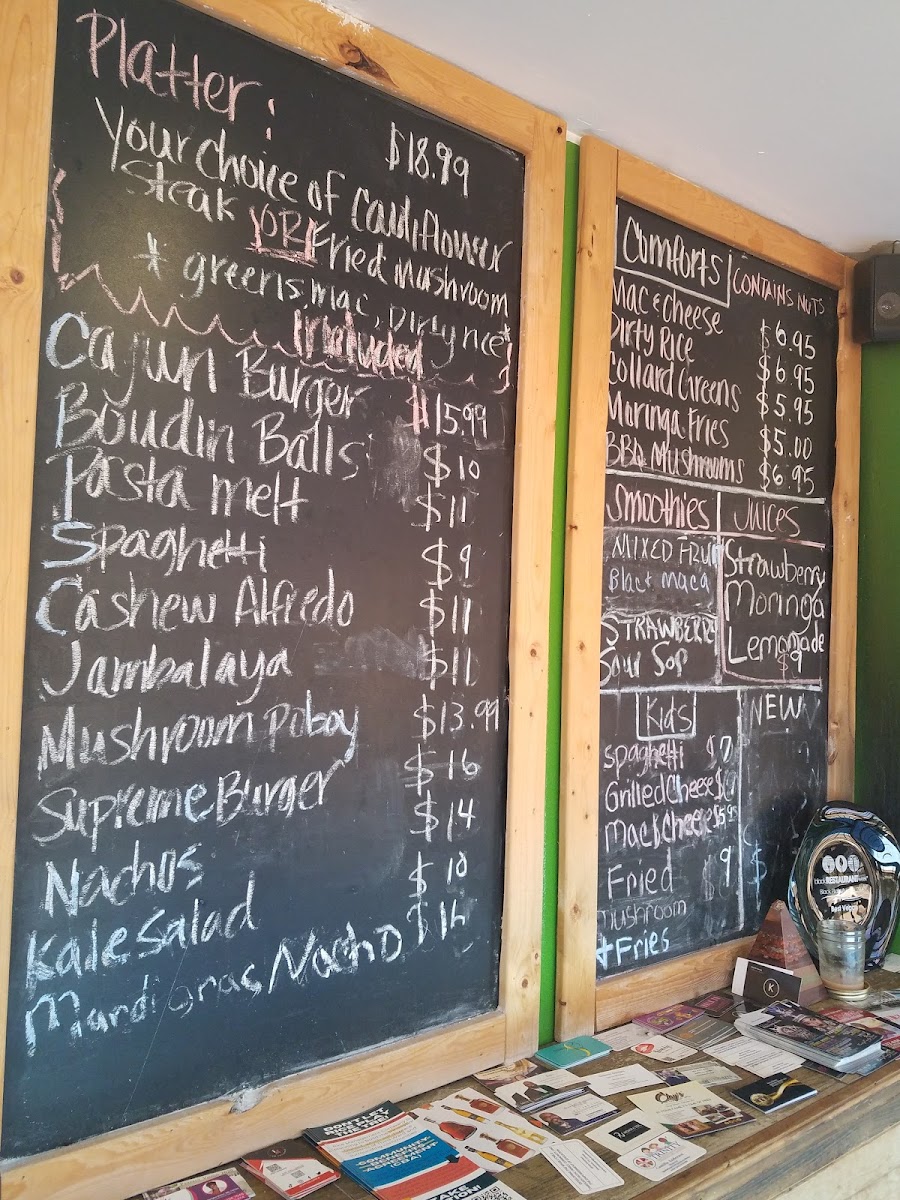 Platter:
$18.99
Your choice of Cauliflower
Steak OR Fried mushroom
* greens, mac, Dirty rice*
Included
Cajun Burger $15.99
Boudin Balls $10
Pasta melt $11
Spaghetti $9
Cashew Alfredo $11
Jambalaya $11
Mushroom poboy $13.99
Supreme Burger $16
Nachos $14
Kale Salad $10
Mardi gras Nacho
Comforts
CONTAINS NUTS
Mac & cheese $6.95
Dirty Rice $6.95
Collard Greens $5.95
Moringa Fries $5.00
BBQ Mushrooms $6.95
Smoothies
MIXED Fruit
Black maca
STRAWBERRY
Sour Sop
Juices
Strawberry
Moringa
Lemonade
$9
Kids
spaghetti $7
Grilled Cheese
Mac & Cheese $5.95
Fried 9
Mushroom
+ Fries
NEW
$
black RESTAURANT
DON'T LET
COMMUNITY
BENEFITS
AGREEMENT
(CBA)!
K